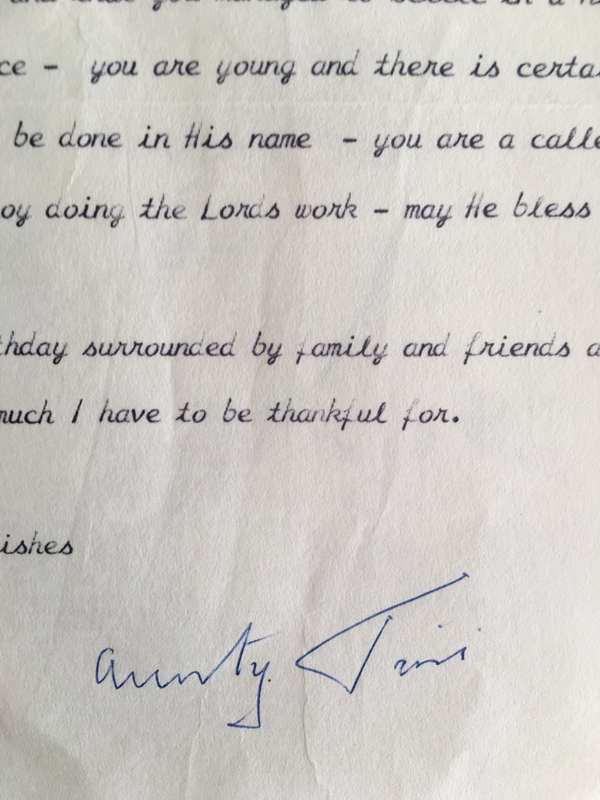 and that you managed to settle in a
ce - you are young and there is certa
be done in His name - you are a calle
oy doing the Lords work - may He bless
thday surrounded by family and friends a
much I have to be thankful for.
ishes
Aunty Tini